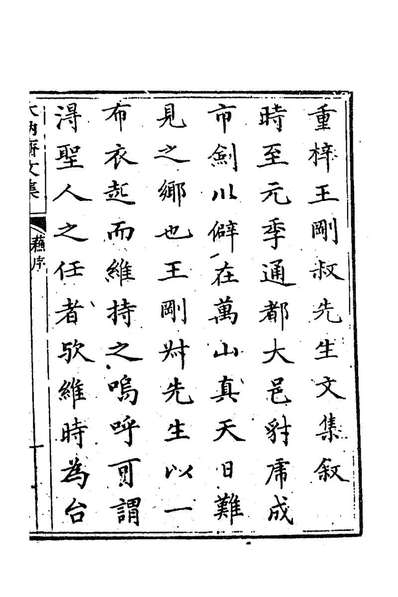 重梓王剛叔先生文集叙
時至元季通都大邑豺虎成
市劍川僻在萬山真天日難
見之鄉也王剛叔先生以一
布衣起而維持之嗚呼可謂
淂聖人之任者欤維時為台
木訥齋文集
蘓序
一